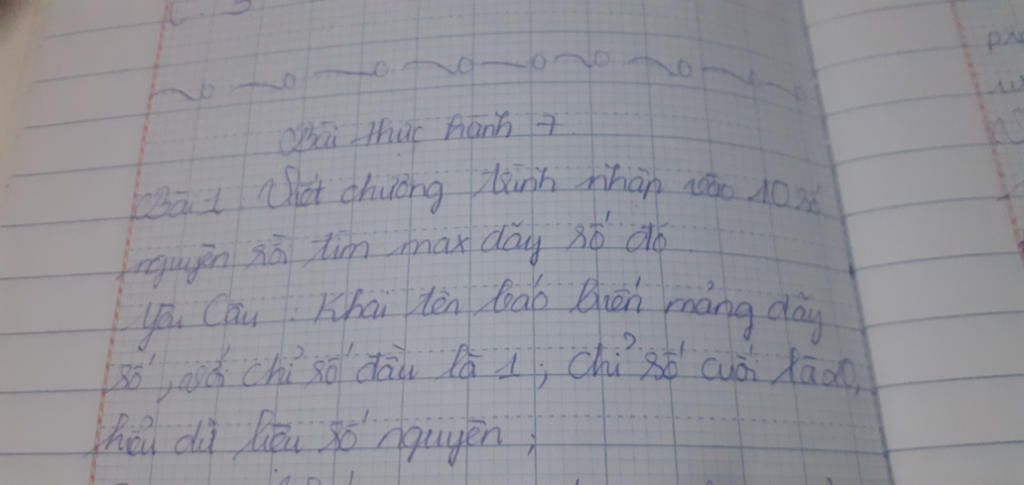 Bài thực hành 7
Bài 1 Viết chương trình nhập vào 10 số
nguyên số tìm max dãy số đó
Yêu Cầu : Khai tên báo biến mảng dãy
số, với chỉ số đầu là 1; chỉ số cuối là
kiểu dữ liệu số nguyên;